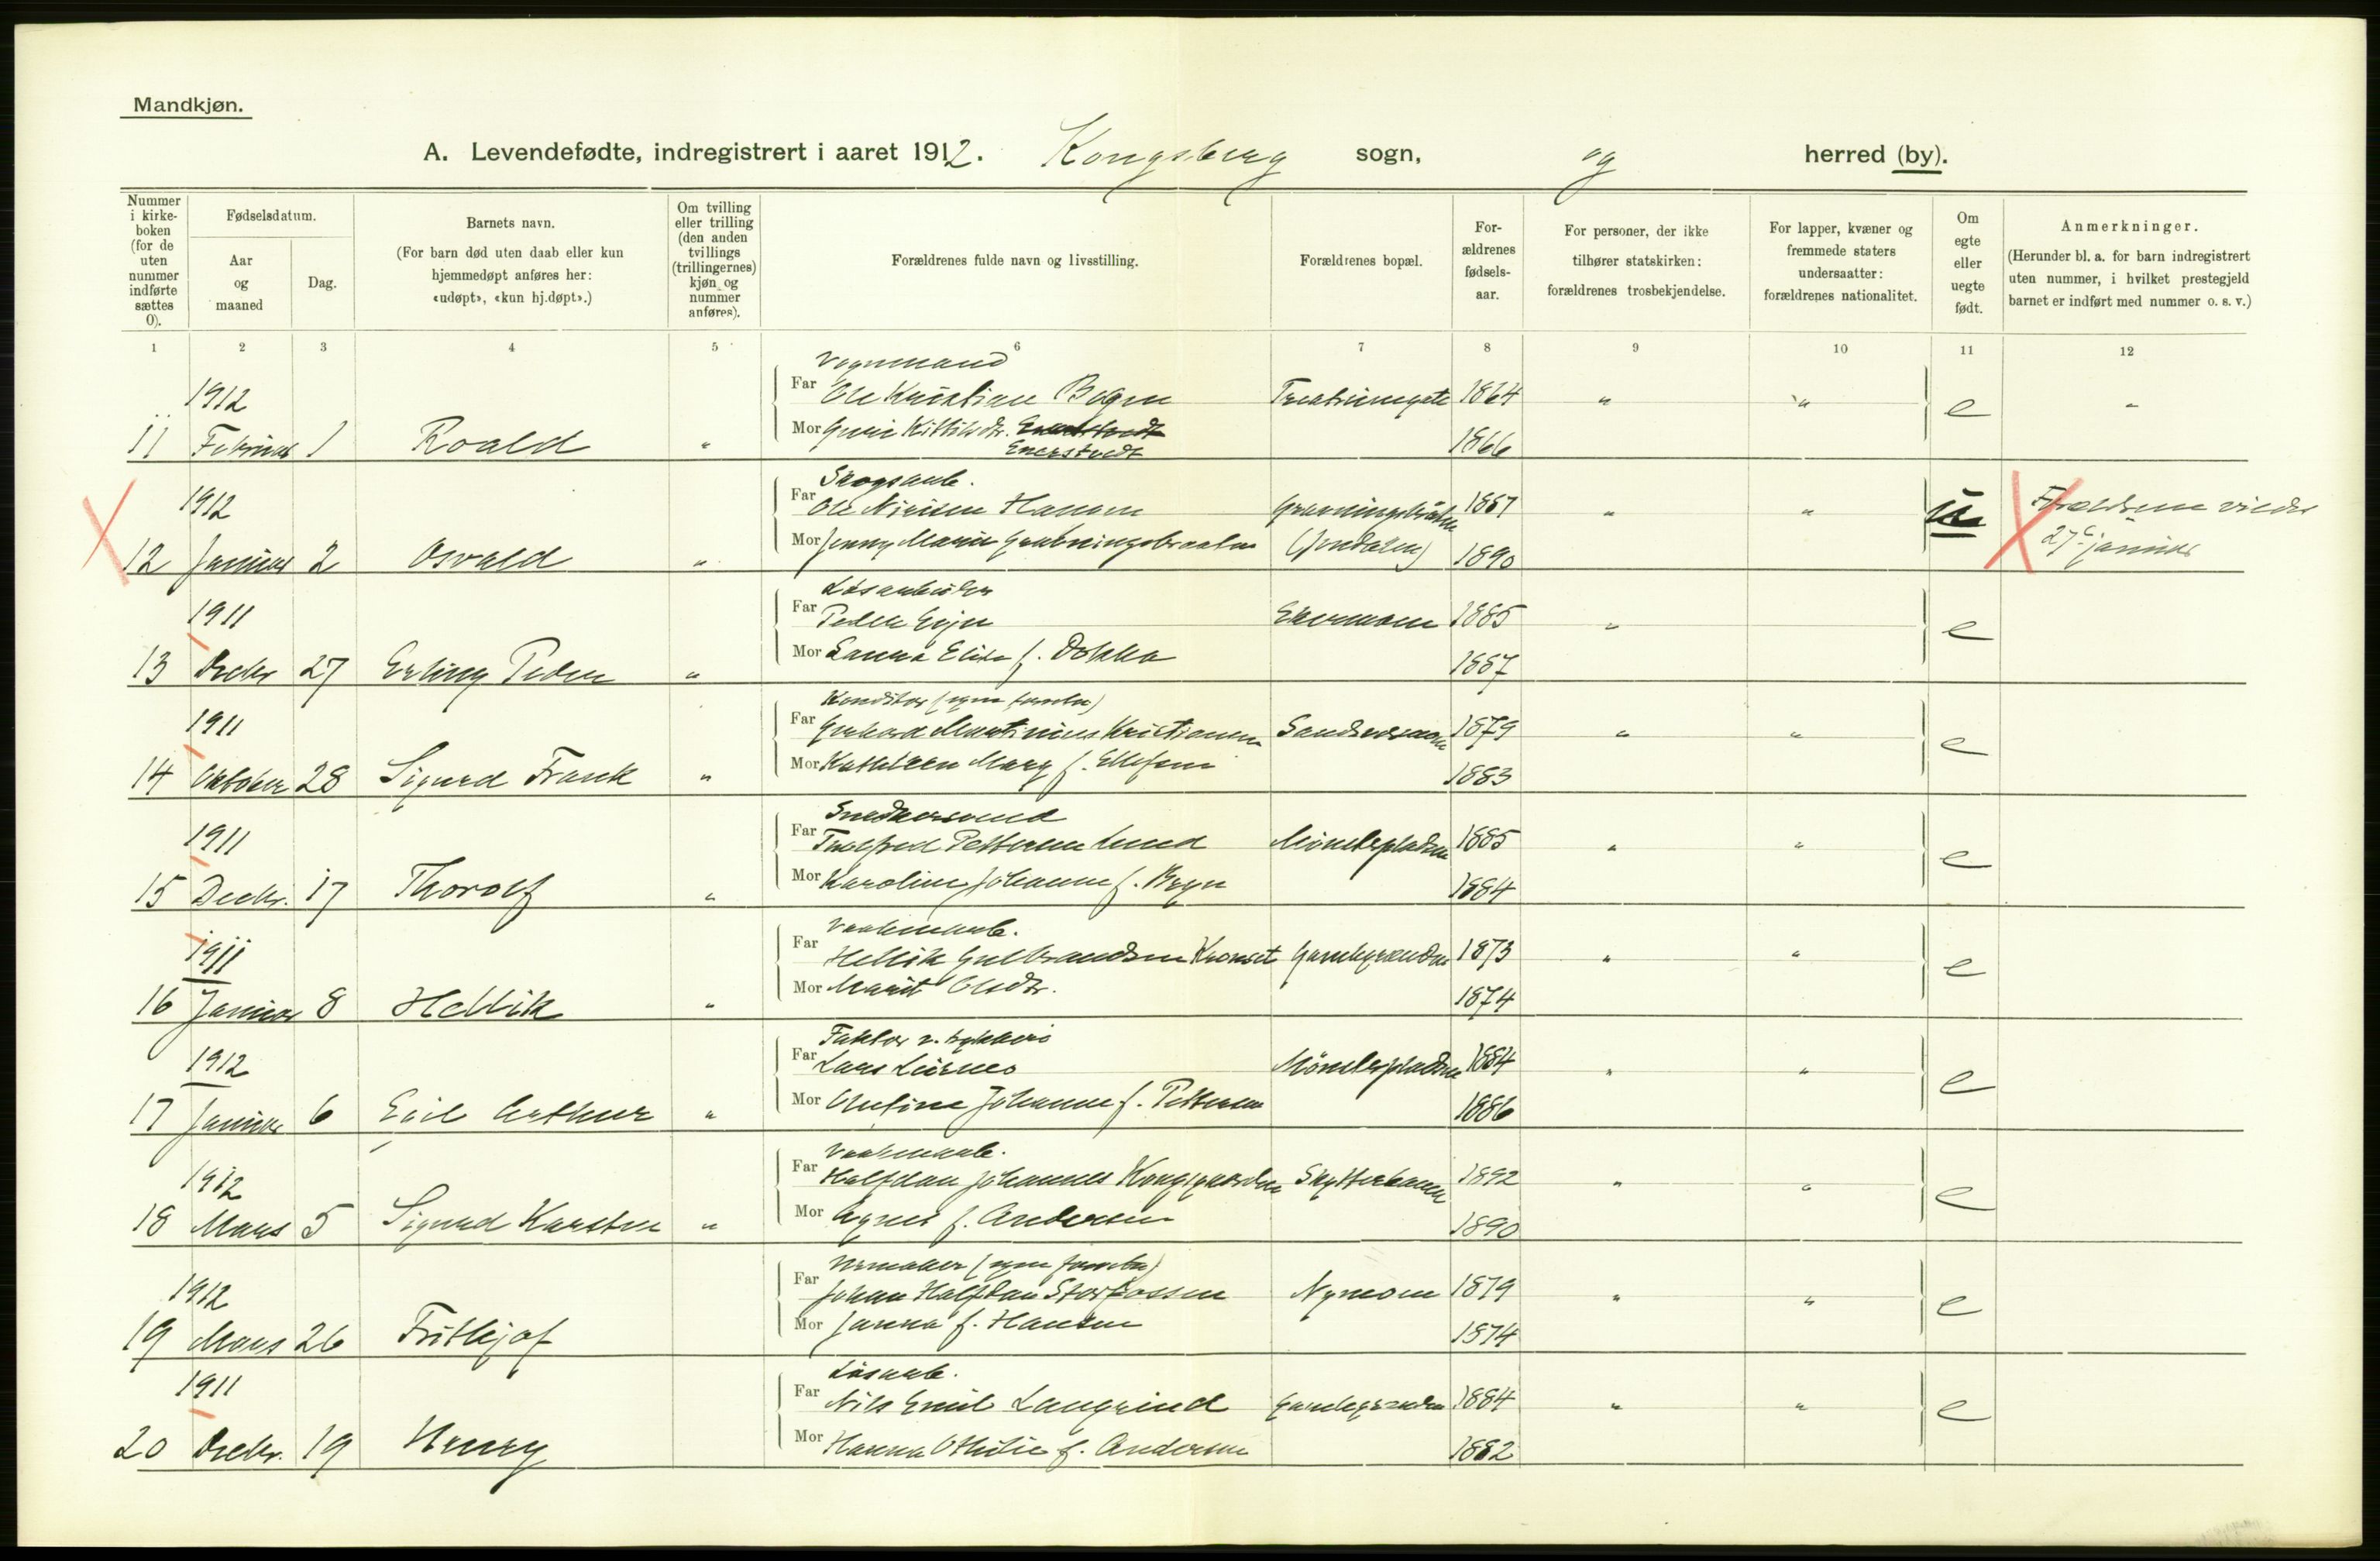 Mandkjøn.
A. Levendefødte, indregistrert i aaret 1912. Kongsberg sogn, og herred (by).
Nummer i kirke-boken (for de uten nummer indførte sættes 0).
Fødselsdatum.
Aar og maaned
Dag.
Barnets navn.
(For barn død uten daab eller kun hjemmedøpt anføres her: «udøpt», «kun hj.døpt».)
Om tvilling eller trilling (den anden tvillings (trillingernes) kjøn og nummer anføres).
Forældrenes fulde navn og livsstilling.
Forældrenes bopæl.
For-ældrenes fødsels-aar.
For personer, der ikke tilhører statskirken: forældrenes trosbekjendelse.
For lapper, kvæner og fremmede staters undersaatter: forældrenes nationalitet.
Om egte eller uegte født.
Anmerkninger.
(Herunder bl. a. for barn indregistrert uten nummer, i hvilket prestegjeld barnet er indført med nummer o. s. v.)
1 2 3 4 5 6 7 8 9 10 11 12
Vognmand
1912 Far Ole Kristian Bogen 1864 " " e "
11 Februar 1 Roald " Mor Guri Kittilsdr.
Enerstvedt 1866
Skogsarb.
1912 Far Ole Nirisen Hansen 1887 " " u Forældrene viedes
12 Januar 2 Osvald " Mor Jenny Marie Grubningsbraaten (Jondalen) 1890 27de januar
Løsarbeider
1911 Far Peder 1885 " e
13 Decbr 27 Erling Peder " Mor Lanna Elise f. Dokka 1887
Konditor (egen forretn)
1911 Far Gerhard Martinius Kristiansen Sandsværmoen 1879 " " e
14 Oktober 28 Sigurd Frank " Mor Kathleen Mary f. Ellefsen 1883
Snedkersvend
1911 Far Pettersen Lund Mønterpladsen 1885 " " e
15 Decbr. 17 Thorolf " Mor Karoline Johanne f. 1884
Vaabenarb.
1911 Far Hellik Gulbrandsen Gamlegrænden 1873 " " e
16 Januar 8 Hellik " Mor Marit Olsdr. 1874
Faktor v. trykkeri
1912 Far Lars Mønterpladsen 1884 " " e
17 Januar 6 Egil Arthur " Mor Olufine Johanne f. Pettersen 1886
Vaabenarb.
1912 Far Halfdan Johannes Kongsgaarden Skytterbanen 1892 " " e
18 Mars 5 Sigurd Karsten " Mor Agnes f. Andersen 1890
Urmaker (egen forretn)
1912 Far Johan Halfdan Storfossen Nymoen 1879 " " e
19 Mars 26 Frithjof Mor Janna f. Hansen 1874
Løsarb.
1911 Far Nils Emil Langrind Gamlegrænden 1884 " " e
20 Decbr. 19 Henry Mor Hanna Othilie f. Andersen 1882